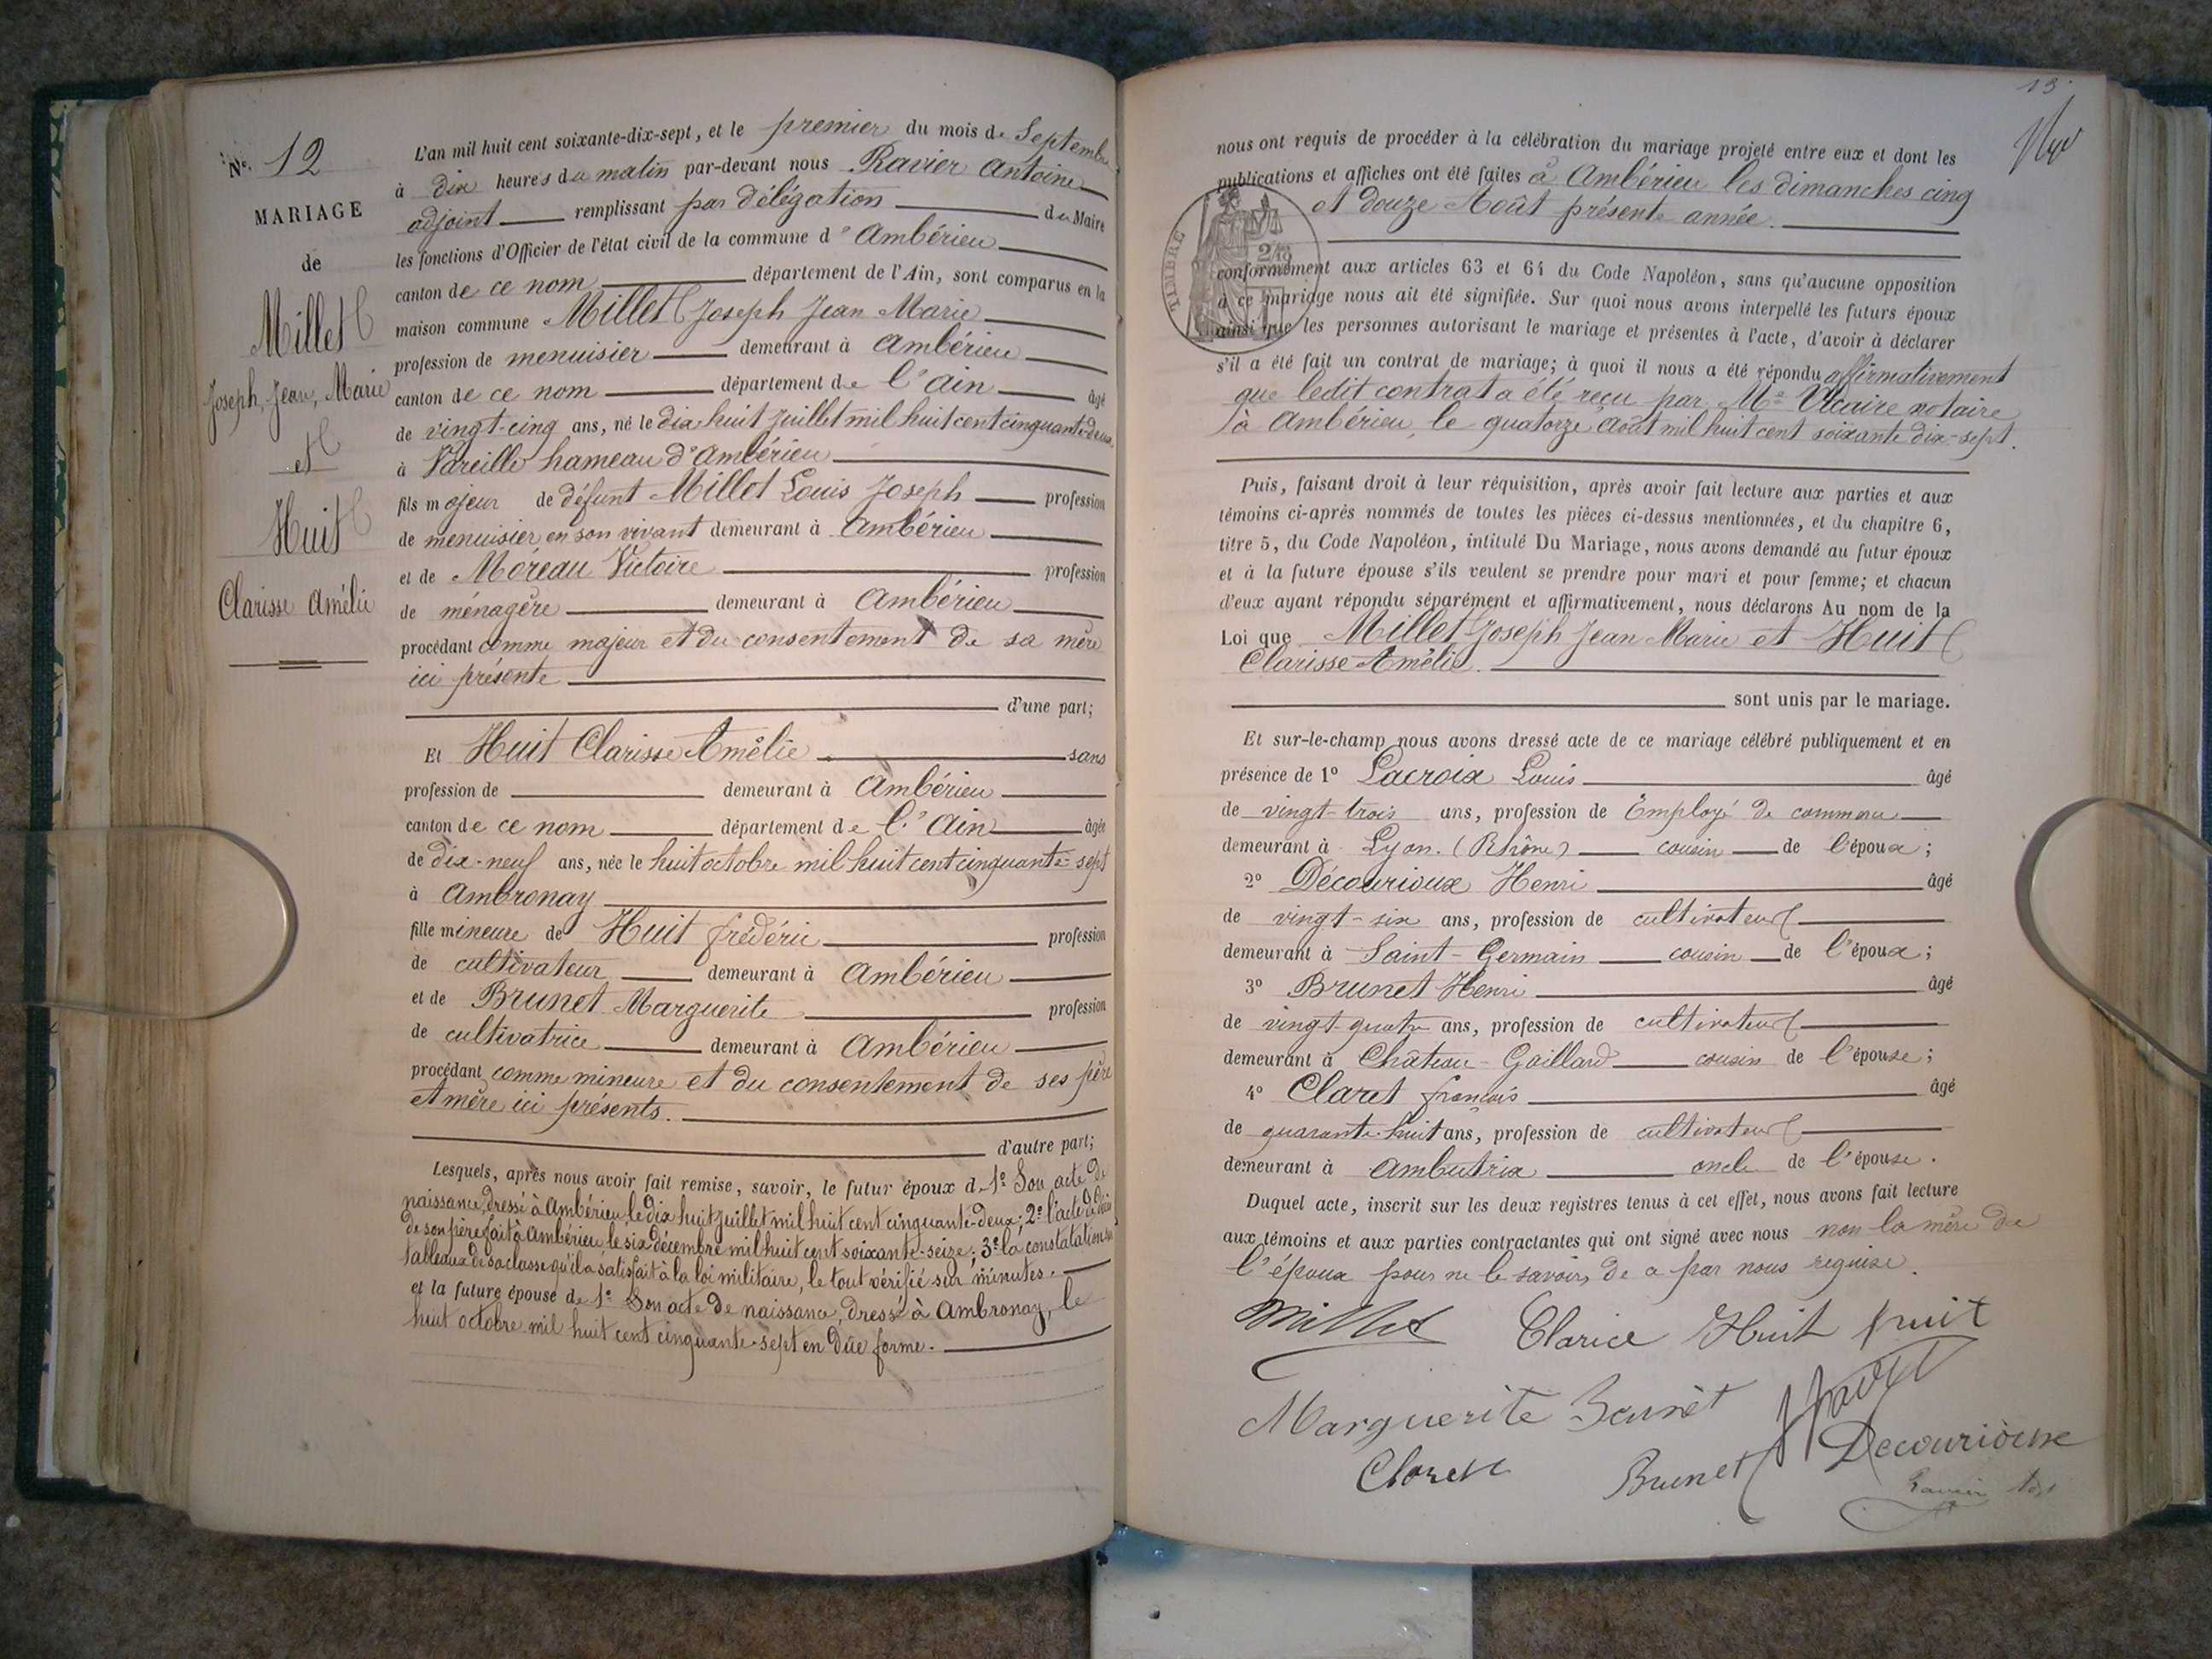 N° 12
MARIAGE
de
Millet
Joseph, Jean, Marie
et
Huit
Clarisse Amélie
L'an mil huit cent soixante-dix-sept, et le premier du mois de Septembre
à dix heures du matin par-devant nous Ravier Antoine
adjoint remplissant par délégation du Maire
les fonctions d'Officier de l'état civil de la commune d'Ambérieu
canton de ce nom département de l'Ain, sont comparus en la
maison commune Millet Joseph Jean Marie
profession de menuisier demeurant à Ambérieu
canton de ce nom département de l'Ain âgé
de vingt-cinq ans, né le dix huit juillet mil huit cent cinquante-deux
à Vareille hameau d'Ambérieu
fils majeur de défunt Millet Louis Joseph profession
de menuisier en son vivant demeurant à Ambérieu
et de Moreau Victoire profession
de ménagère demeurant à Ambérieu
procédant comme majeur et du consentement de sa mère
ici présente
d'une part;
Et Huit Clarisse Amélie sans
profession de demeurant à Ambérieu
canton de ce nom département de l'Ain âgée
de dix-neuf ans, née le huit octobre mil huit cent cinquante-sept
à Ambronay
fille mineure de Huit frédéric profession
de cultivateur demeurant à Ambérieu
et de Brunet Marguerite profession
de cultivatrice demeurant à Ambérieu
procédant comme mineure et du consentement de ses père
et mère ici présents.
d'autre part;
Lesquels, après nous avoir fait remise, savoir, le futur époux de 1° Son acte de
naissance, dressé à Ambérieu le dix huit juillet mil huit cent cinquante-deux; 2° l'acte de décès
de son père fait à Ambérieu, le six décembre mil huit cent soixante-seize; 3° la constatation
tableaux de sa classe qu'il a satisfait à la loi militaire, le tout vérifié sur minutes.
et la future épouse de 1° Son acte de naissance, dressé à Ambronay, le
huit octobre mil huit cent cinquante-sept en dûe forme.
13
nous ont requis de procéder à la célébration du mariage projeté entre eux et dont les
publications et affiches ont été faites à Ambérieu les dimanches cinq
et douze Août présente année.
TIMBRE
conformément aux articles 63 et 64 du Code Napoléon, sans qu'aucune opposition
à ce mariage nous ait été signifiée. Sur quoi nous avons interpellé les futurs époux
ainsi que les personnes autorisant le mariage et présentes à l'acte, d'avoir à déclarer
s'il a été fait un contrat de mariage; à quoi il nous a été répondu affirmativement
que ledit contrat a été reçu par Me Vicaire notaire
à Ambérieu, le quatorze août mil huit cent soixante dix-sept.
Puis, faisant droit à leur réquisition, après avoir fait lecture aux parties et aux
témoins ci-après nommés de toutes les pièces ci-dessus mentionnées, et du chapitre 6,
titre 5, du Code Napoléon, intitulé Du Mariage, nous avons demandé au futur époux
et à la future épouse s'ils veulent se prendre pour mari et pour femme; et chacun
d'eux ayant répondu séparément et affirmativement, nous déclarons Au nom de la
Loi que Millet Joseph Jean Marie et Huit
Clarisse Amélie.
sont unis par le mariage.
Et sur-le-champ nous avons dressé acte de ce mariage célébré publiquement et en
présence de 1° Lacroix Louis âgé
de vingt-trois ans, profession de Employé de commerce
demeurant à Lyon. (Rhône) cousin de l'époux;
2° Décourioux Henri âgé
de vingt-six ans, profession de cultivateur
demeurant à Saint-Germain cousin de l'époux;
3° Brunet Henri âgé
de vingt-quatre ans, profession de cultivateur
demeurant à Château-Gaillard cousin de l'épouse;
4° Claret françois âgé
de quarante-huit ans, profession de cultivateur
demeurant à Ambutrix oncle de l'épouse.
Duquel acte, inscrit sur les deux registres tenus à cet effet, nous avons fait lecture
aux témoins et aux parties contractantes qui ont signé avec nous non la mère de
l'époux pour ne le savoir, de ce par nous requise.
Millet Clarice Huit huit
Marguerite Brunet
Decourioux
Claret Brunet
Ravier